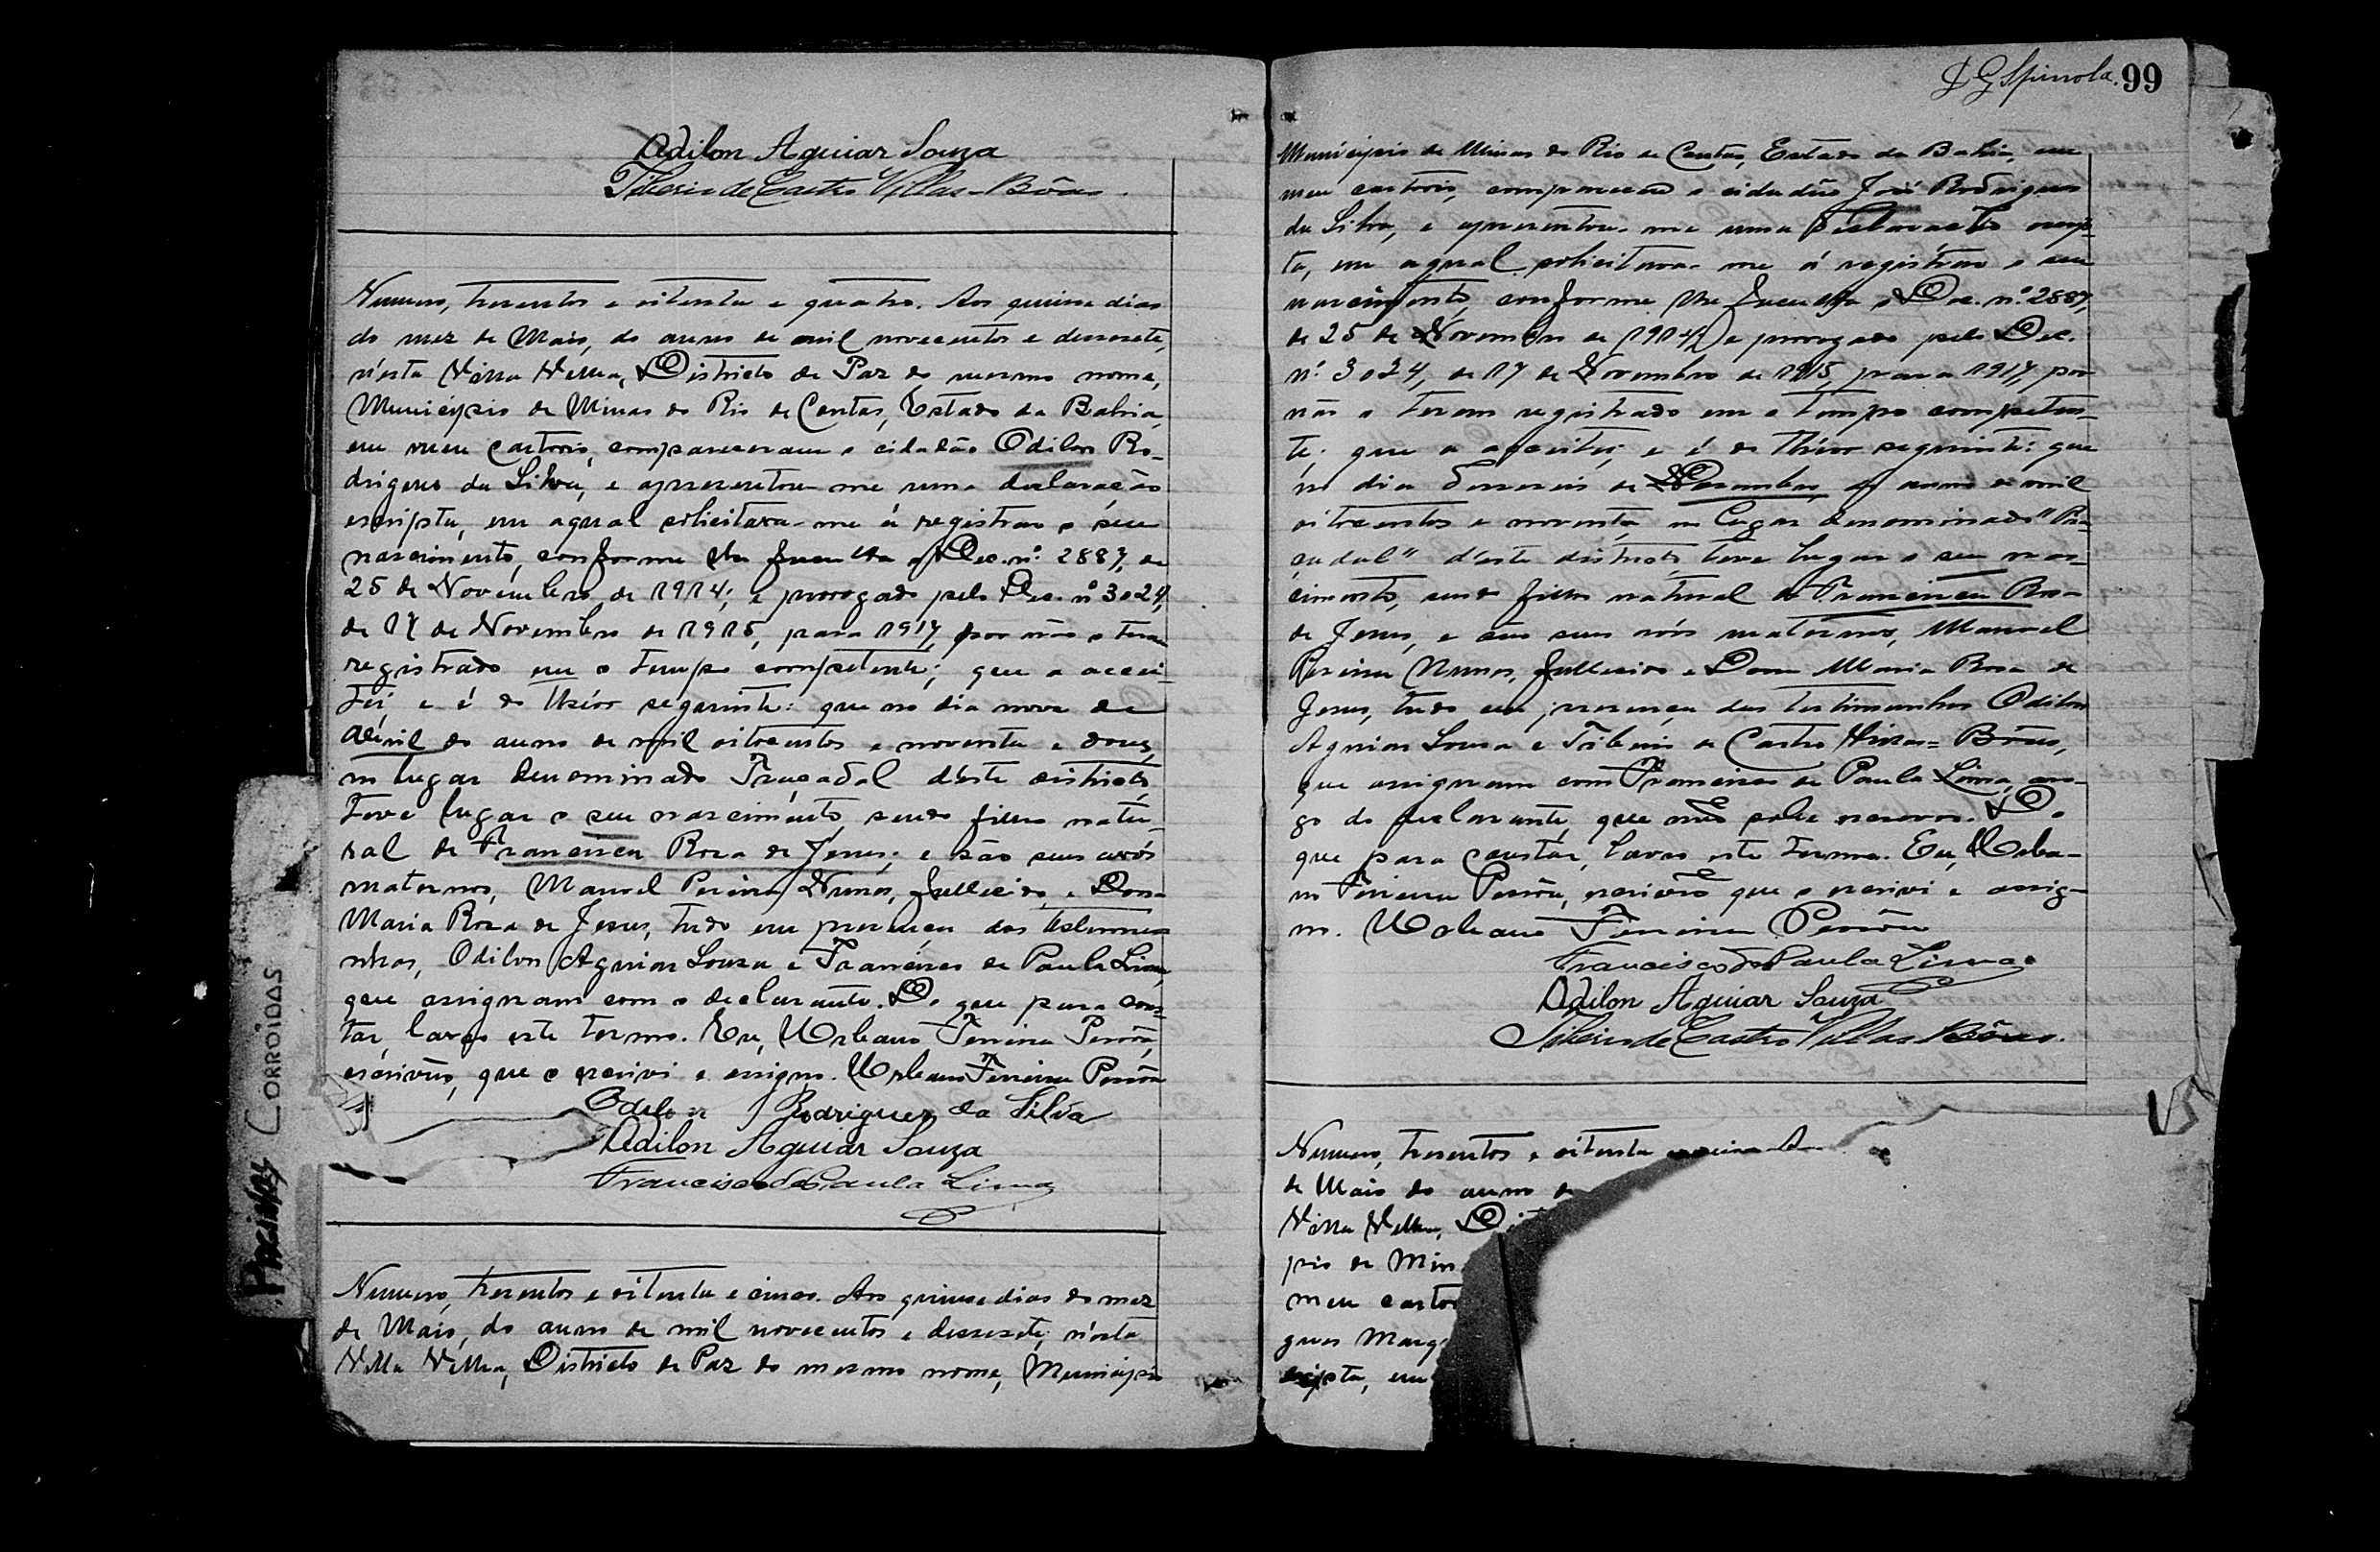 Odilon Aguiar Souza
Tiberio de Castro Villas-Bôas.
Numero, tresentos e oitenta e quatro. Aos quinse dias
do mez de Maio, do anno de mil novecentos e dezesete,
n'esta Villa Velha, Districto de Paz do mesmo nome,
Municipio de Minas do Rio de Contas, Estado da Bahia,
em meu cartorio, compareceram o cidadão Odilon Ro-
drigues da Silva, e apresentou-me uma declaração
escripta, em a qual solicitara-me á registrar o seu
nascimento, conforme lhe faculta o Dec. nº. 2887, de
25 de Novembro de 1914; e prorogado pelo Dec. nº 3024,
de 17 de Novembro de 1915, para 1917, por não o terem
registrado em o tempo competente; que a accei-
tei, e é do theor seguinte: que no dia nove de
Abril do anno de mil oitocentos e noventa e dous,
no lugar denominado Traçadal d'este districto,
teve lugar o seu nascimento, sendo filho natu-
ral de Francisca Roza de Jesus; e são seus avós
maternos, Manoel Pereira Nunes, fallecido, e Dona
Maria Roza de Jesus, tudo em presença das testemu-
nhas, Odilon Aguiar Souza e Francisco de Paula Lima,
que assignam com o declarante. Do que para cons-
tar, lavro este termo. Eu, Urbano Ferreira Pessôa,
escrivão, que o escrivi e assigno. Urbano Ferreira Pessôa
Odilon Rodrigues da Silva
Odilon Aguiar Souza
Francisco de Paula Lima
Numero, tresentos e oitenta e cinco. Aos quinse dias do mez
de Maio, do anno de mil novecentos e dezesete, n'esta
Villa Velha, Districto de Paz do mesmo nome, Municipio
PAGINAS CORROIDAS
Spinola. 99
Municipio de Minas do Rio de Contas, Estado da Bahia, em
meu cartorio, compareceu o cidadão José Rodrigues
da Silva, e apresentou-me uma declaração escrip-
ta, em a qual solicitara-me á registrar o seu
nascimento, conforme lhe faculta o Dec. nº. 2887,
de 25 de Novembro de 1914, e prorogado pelo Dec.
nº. 3024, de 17 de Novembro de 1915, para 1917, por
não o terem registrado em o tempo competen-
te; que a acceitei, e é do theor seguinte: que
no dia desesseis de Dezembro do anno de mil
oitocentos e noventa, no lugar denominado
d'este districto, teve lugar o seu nas-
cimento, sendo filho natural de Francisca Rosa
de Jesus, e são seus avós maternos, Manoel
Pereira Nunes, fallecido e Dona Maria Rosa de
Jesus, tudo em presença das testimunhas Odilon
Aguiar Sousa e Tiberio de Castro Villas-Bôas,
que assignam com Francisco de Paula Lima, a ro-
go do declarante, que não sabe escrever. Do
que para constar, lavro este termo. Eu, Urba-
no Ferreira Pessôa, escrivão que o escrivi e assig-
no. Urbano Ferreira Pessôa
Francisco de Paula Lima
Odilon Aguiar Souza
Tiberio de Castro Villas Bôas.
Numero, tresentos e oitenta
de Maio do anno
Villa Velha,
pio de Min
meu carto
gues Marq
cripta, em